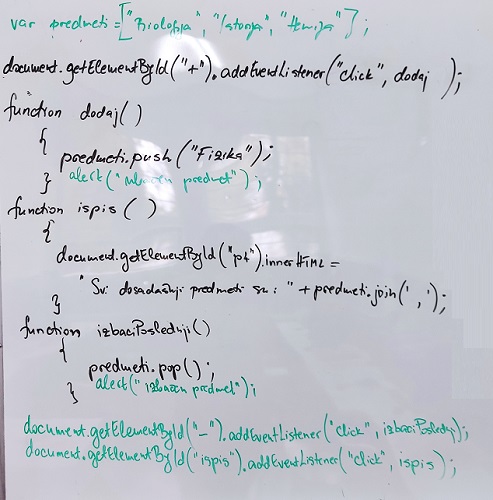 var predmeti=["Biologija", "Istorija", "Hemija"];
document.getElementById("+").addEventListener("click", dodaj );
function dodaj()
{
predmeti.push("Fizika");
alert("ubačen predmet");
}
function ispis()
{
document.getElementById("p1").innerHTML=
"Svi dosadašnji predmeti su: " + predmeti.join(', ');
}
function izbaciPoslednji()
{
predmeti.pop();
alert("izbačen predmet");
}
document.getElementById("-").addEventListener("click", izbaciPoslednji);
document.getElementById("ispis").addEventListener("click", ispis);